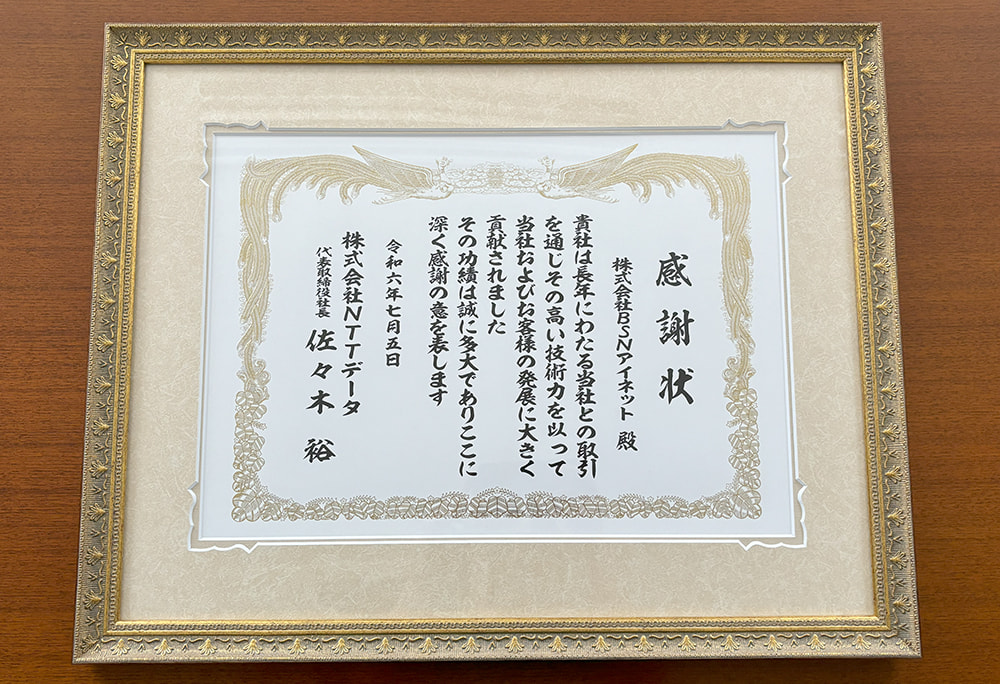 感謝状
株式会社BSNアイネット 殿
貴社は長年にわたる当社との取引
を通じその高い技術力を以って
当社およびお客様の発展に大きく
貢献されました
その功績は誠に多大でありここに
深く感謝の意を表します
令和六年七月五日
株式会社NTTデータ
代表取締役社長 佐々木 裕